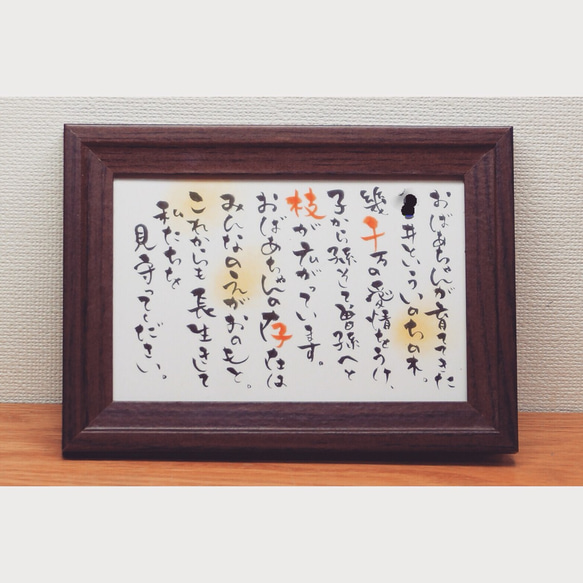 おばあちゃんが育ててきた
井といういのちの木。
幾千万の愛情をうけ、
子から孫そして曽孫へと
枝が広がっています。
おばあちゃんの存在は
みんなのえがおのもと。
これからも長生きして
私たちを
見守ってください。